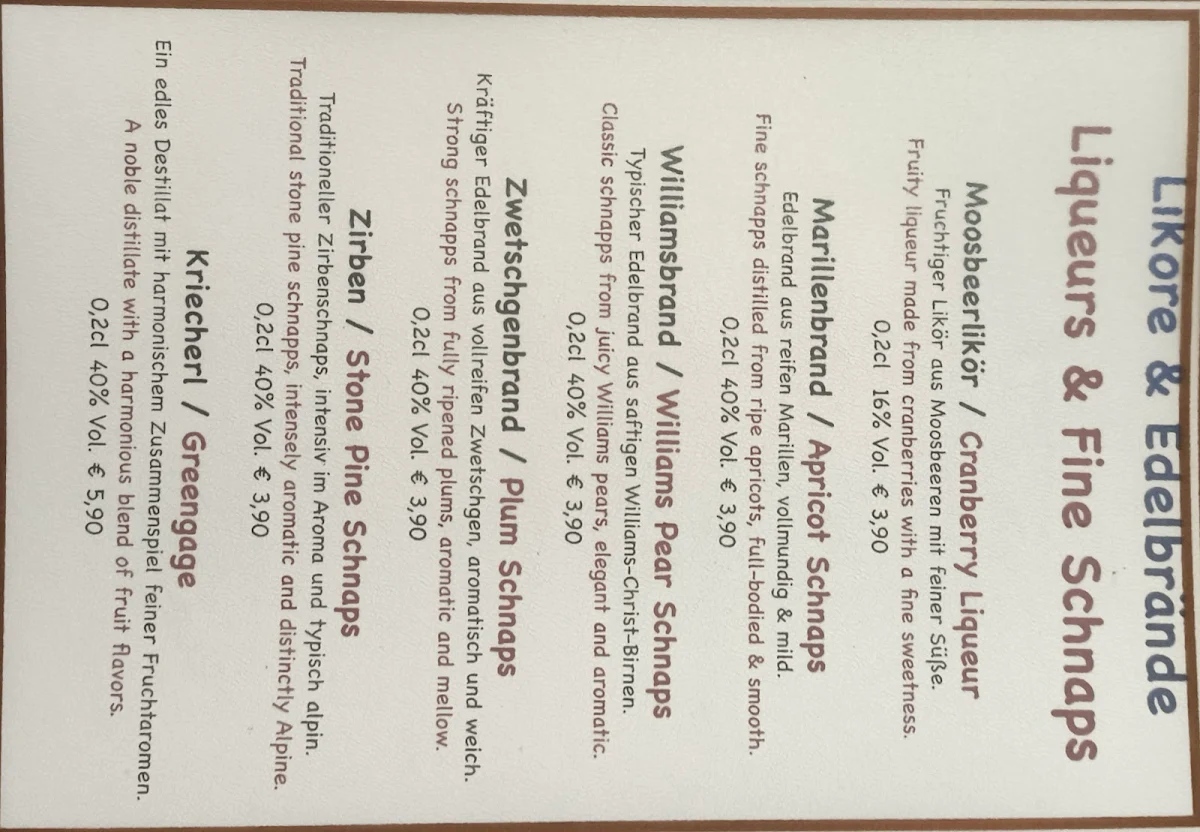 Liköre & Edelbrände
Liqueurs & Fine Schnaps
Moosbeerlikör / Cranberry Liqueur
Fruchtiger Likör aus Moosbeeren mit feiner Süße.
Fruity liqueur made from cranberries with a fine sweetness.
0,2cl 16% Vol. € 3,90
Marillenbrand / Apricot Schnaps
Edelbrand aus reifen Marillen, vollmundig & mild.
Fine schnapps distilled from ripe apricots, full-bodied & smooth.
0,2cl 40% Vol. € 3,90
Williamsbrand / Williams Pear Schnaps
Typischer Edelbrand aus saftigen Williams-Christ-Birnen.
Classic schnapps from juicy Williams pears, elegant and aromatic.
0,2cl 40% Vol. € 3,90
Zwetschgenbrand / Plum Schnaps
Kräftiger Edelbrand aus vollreifen Zwetschgen, aromatisch und weich.
Strong schnapps from fully ripened plums, aromatic and mellow.
0,2cl 40% Vol. € 3,90
Zirben / Stone Pine Schnaps
Traditioneller Zirbenschnaps, intensiv im Aroma und typisch alpin.
Traditional stone pine schnapps, intensely aromatic and distinctly Alpine.
0,2cl 40% Vol. € 3,90
Kriecherl / Greengage
Ein edles Destillat mit harmonischem Zusammenspiel feiner Fruchtaromen.
A noble distillate with a harmonious blend of fruit flavors.
0,2cl 40% Vol. € 5,90